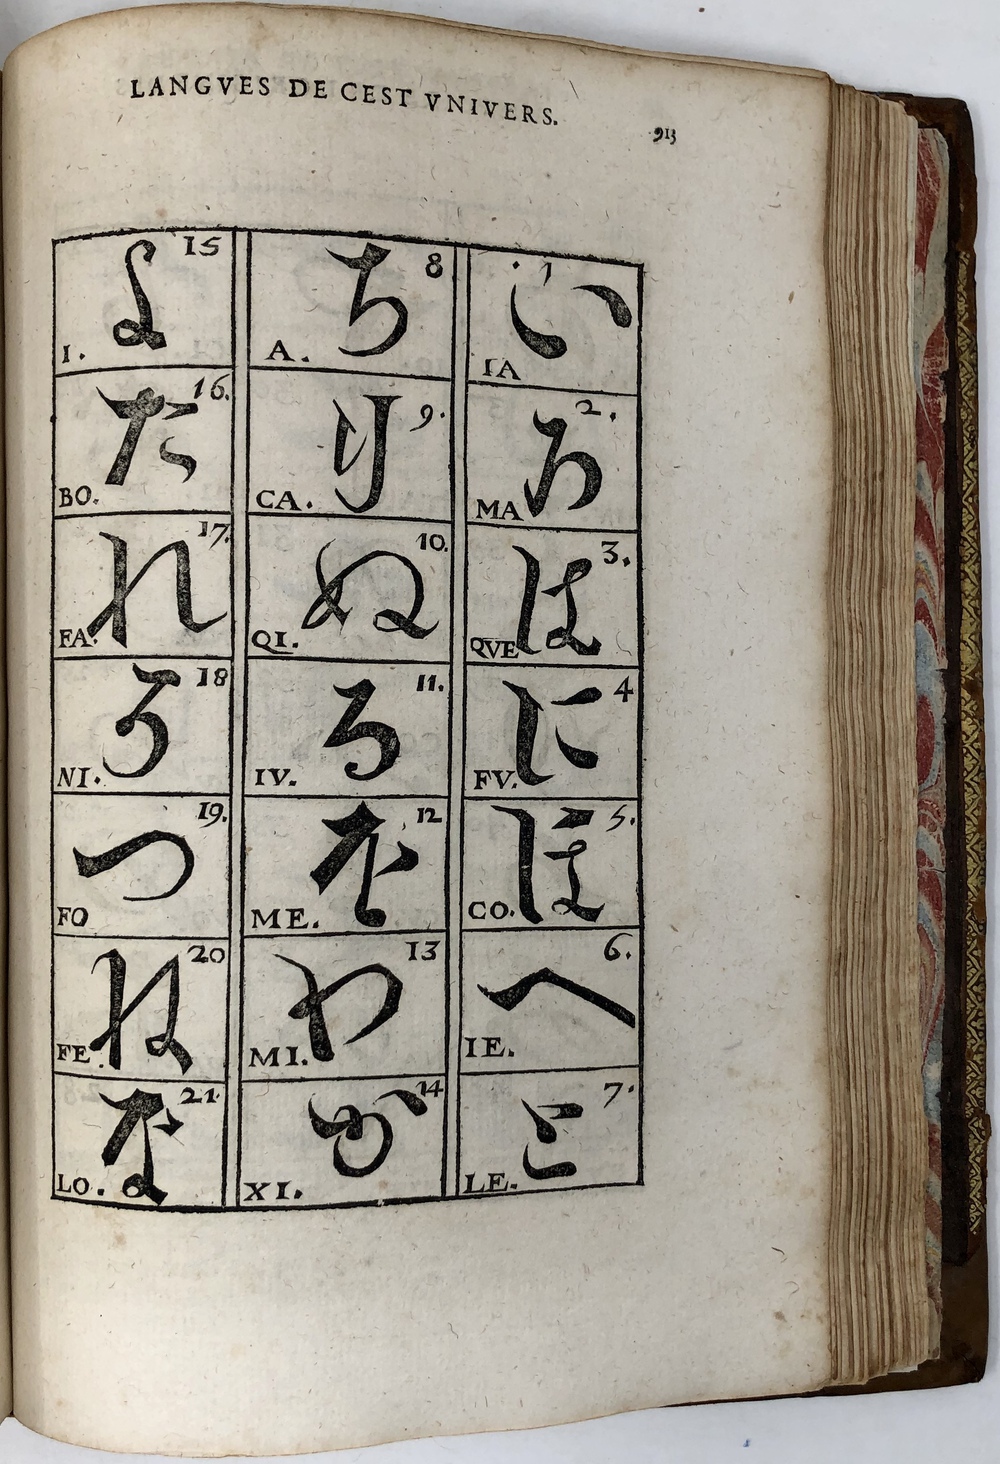 LANGVES DE CEST VNIVERS.
913
1 い IA
2. ろ MA
3. は QVE
4 に FV.
5. ほ CO.
6. へ IE.
7. と LE.
8 ち A.
9. り CA.
10. ぬ QI.
11. る IV.
12 を ME.
13 わ MI.
14 か XI.
15 よ I.
16. た BO.
17. れ FA.
18 そ NI.
19. つ FO
20 ね FE.
21. な LO.